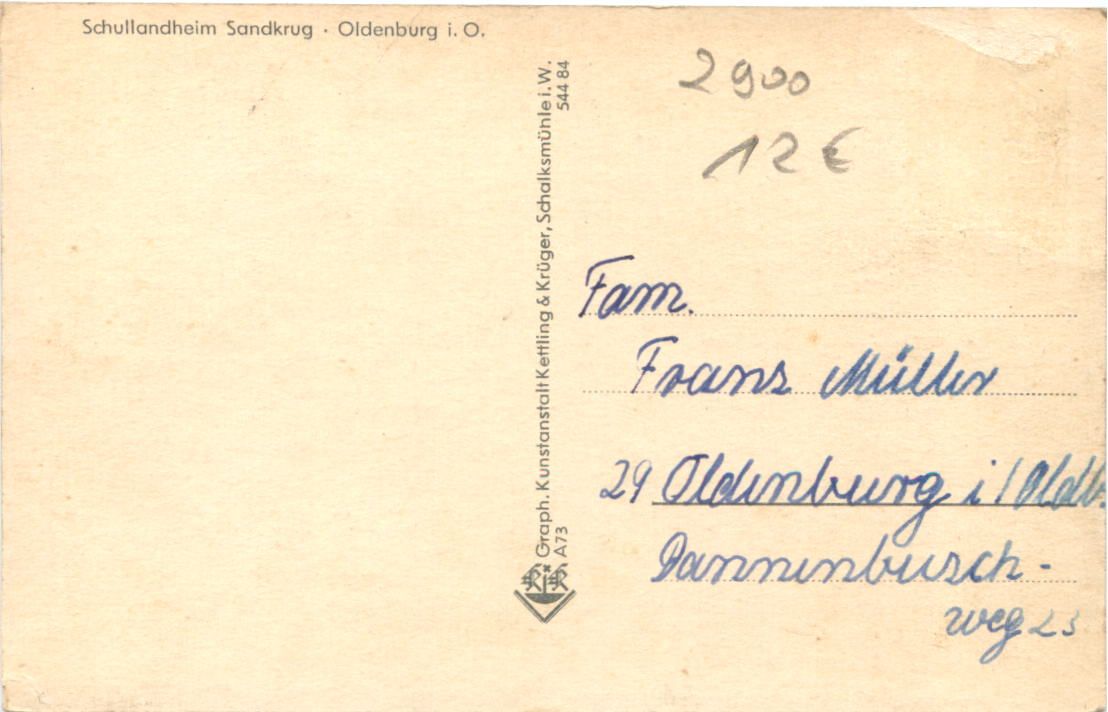 Schullandheim Sandkrug · Oldenburg i. O.
Graph. Kunstanstalt Kettling & Krüger, Schalksmühle i. W.
A73
544 84
2900
12 €
Fam.
Franz Müller
29 Oldenburg i/Oldb.
Dannenbusch-
weg 23